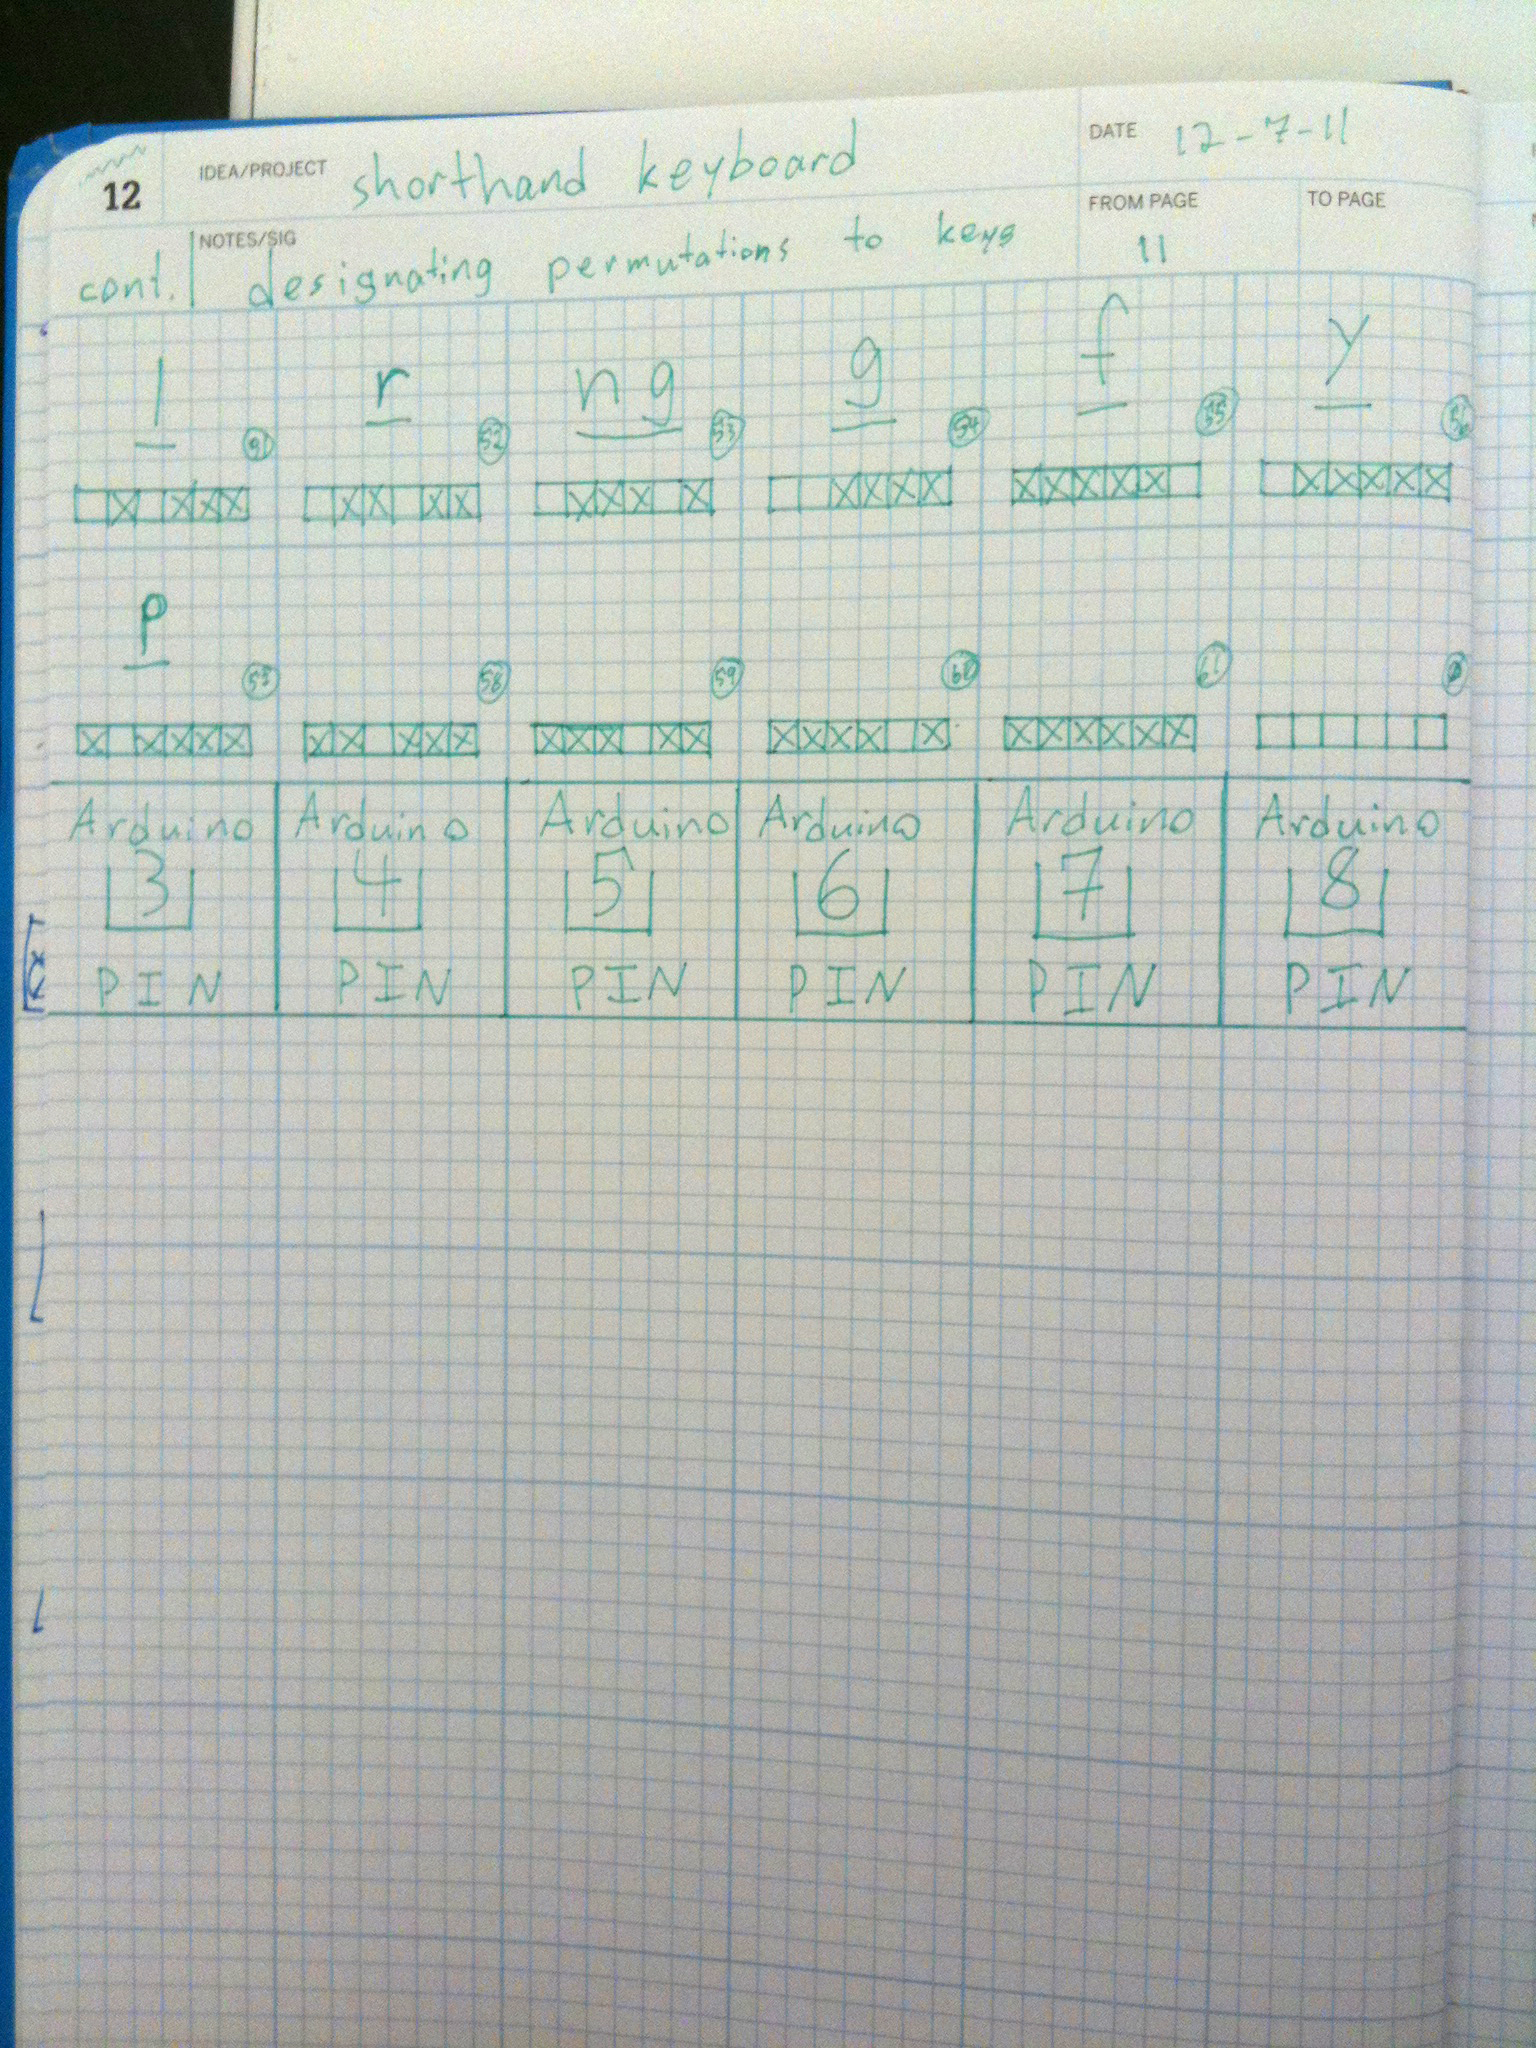 12
IDEA/PROJECT shorthand keyboard
DATE 12-7-11
cont. NOTES/SIG designating permutations to keys
FROM PAGE 11
TO PAGE
l r ng g f y
51 52 53 54 55 56
p
57 58 59 60 61
Arduino Arduino Arduino Arduino Arduino Arduino
3 4 5 6 7 8
PIN PIN PIN PIN PIN PIN